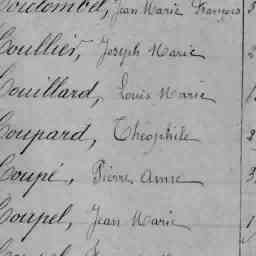 Jean Marie François
Coulliér, Joseph Marie
Couillard, Louis Marie
Coupard, Théophile
Coupé, Pierre Anne
Courpel, Jean Marie